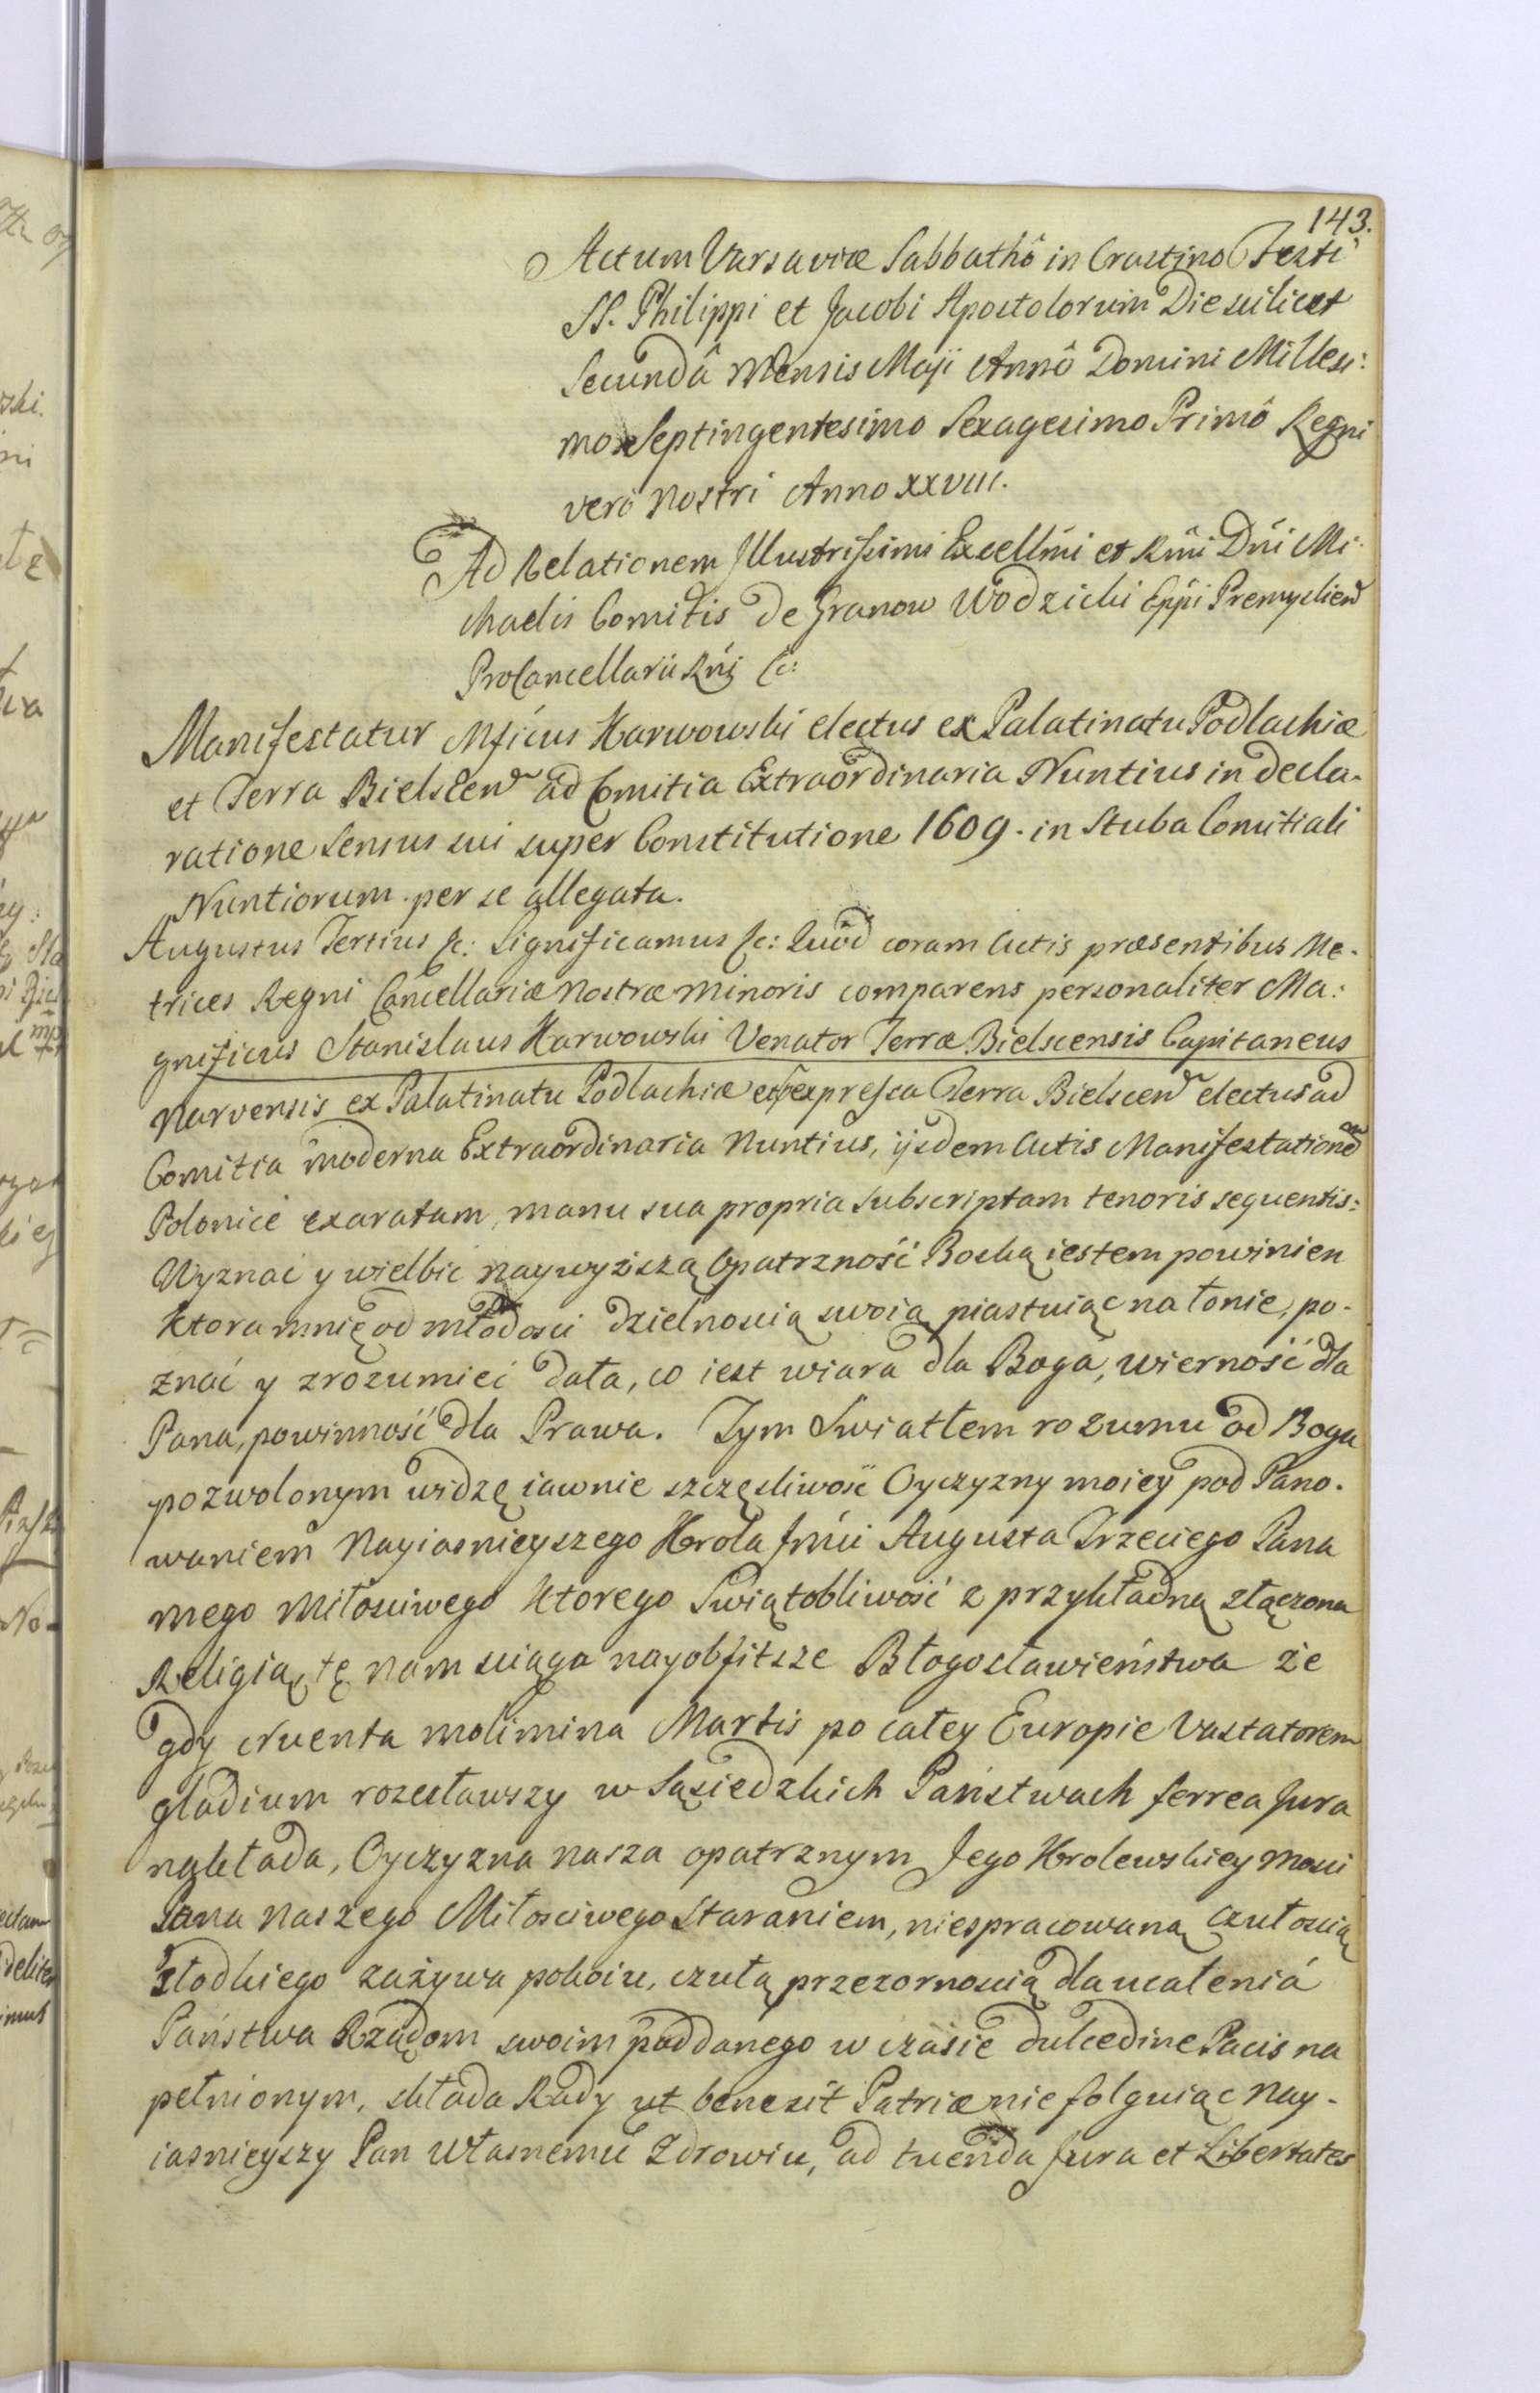 143.
Actum Varsaviæ Sabbathô in Crastino Festi
SS. Philippi et Jacobi Apostolorum Die scilicet
Secundâ Mensis Maji Annô Domini Millesi:
mo Septingentesimo Sexagesimo Primô Regni
vero Nostri Anno XXVIII.
Ad Relationem Illustrissimi Excellmi et Rmi Dni Mi:
chaelis Comitis de Granow Wodzicki Eppi Premyslien
ProCancellarii Rni &c:
Manifestatur Mficus Karwowski electus ex Palatinatu Podlachiæ
et Terra Bielscen ad Comitia Extraordinaria Nuntius in decla-
ratione Sensus sui super Constitutione 1609. in Stuba Comitiali
Nuntiorum per se allegata.
Augustus Tertius &c: Significamus &c: Quod coram Actis præsentibus Me-
trices Regni Cancellariæ Nostræ Minoris comparens personaliter Ma:
gnificus Stanislaus Karwowski Venator Terræ Bielscensis Capitaneus
Narvensis ex Palatinatu Podlachiæ et expressa Terra Bielscen electus ad
Comitia moderna Extraordinaria Nuntius, ijsdem Actis Manifestationem
Polonice exaratam, manu sua propria subscriptam tenoris sequentis:
Wyznać y wielbić naywyższą Opatrzność Boską iestem powinien
ktora mnię od młodosci dzielnoscią swoią piastuiąc na łonie, po-
znać y zrozumieć dała, co iest wiara dla Boga, wierność dla
Pana, powinność dla Prawa. Tym Swiatłem rozumu od Boga
pozwolonym widzę iawnie szczęsliwość Oyczyzny moiey pod Pano-
waniem Nayiasnieyszego Krola Jmci Augusta Trzeciego Pana
mego Miłosciwego ktorego Swiątobliwość z przykładną złączona
Religią, tę nam sciąga nayobfitsze Błogosławieństwa że
gdy cruenta molimina Martis po całey Europie Vastatorem
gladium rozesławszy w Sąsiedzkich Państwach ferrea Jura
nakłada, Oyczyzna nasza opatrznym Jego Krolewskiey Mosci
Pana Naszego Miłosciwego Staraniem, niespracowaną czułoscią
słodkiego zażywa pokoiu, czułą przezornoscią dla ucalenia
Państwa Rządom swoim poddanego w czasie dulcedine Pacis na
pełnionym, składa Rady ut bene sit Patriæ nie folguiąc Nay-
iasnieyszy Pan własnemu Zdrowiu, ad tuenda Jura et Libertates